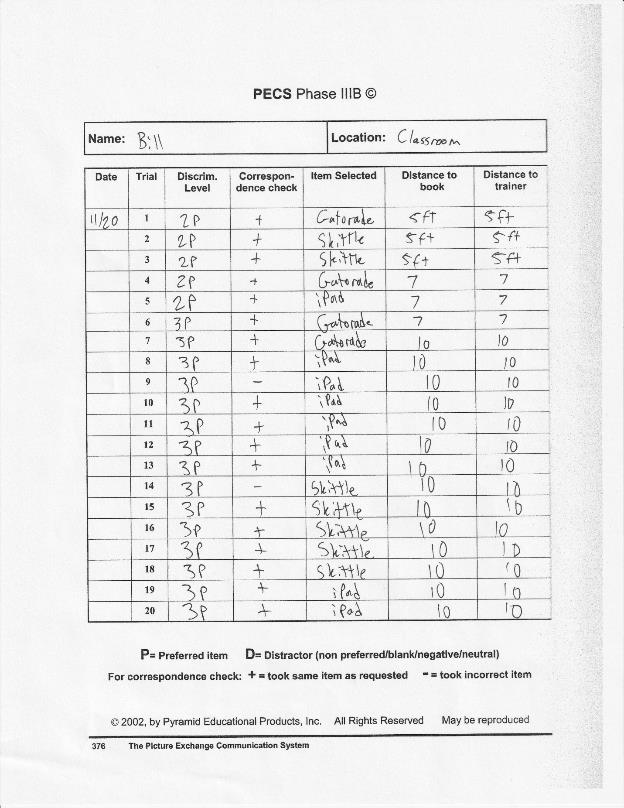 PECS Phase IIIB ©
Name: Bill Location: Classroom
Date Trial Discrim. Level Correspon-dence check Item Selected Distance to book Distance to trainer
11/20 1 2P + Gatorade 5ft 5ft
2 2P + Skittle 5ft 5ft
3 2P + Skittle 5ft 5ft
4 2P + Gatorade 7 7
5 2P + iPad 7 7
6 3P + Gatorade 7 7
7 3P + Gatorade 10 10
8 3P + iPad 10 10
9 3P - iPad 10 10
10 3P + iPad 10 10
11 3P + iPad 10 10
12 3P + iPad 10 10
13 3P + iPad 10 10
14 3P - Skittle 10 10
15 3P + Skittle 10 10
16 3P + Skittle 10 10
17 3P + Skittle 10 10
18 3P + Skittle 10 10
19 3P + iPad 10 10
20 3P + iPad 10 10
P= Preferred item D= Distractor (non preferred/blank/negative/neutral)
For correspondence check: + = took same item as requested - = took incorrect item
© 2002, by Pyramid Educational Products, Inc. All Rights Reserved May be reproduced
376 The Picture Exchange Communication System